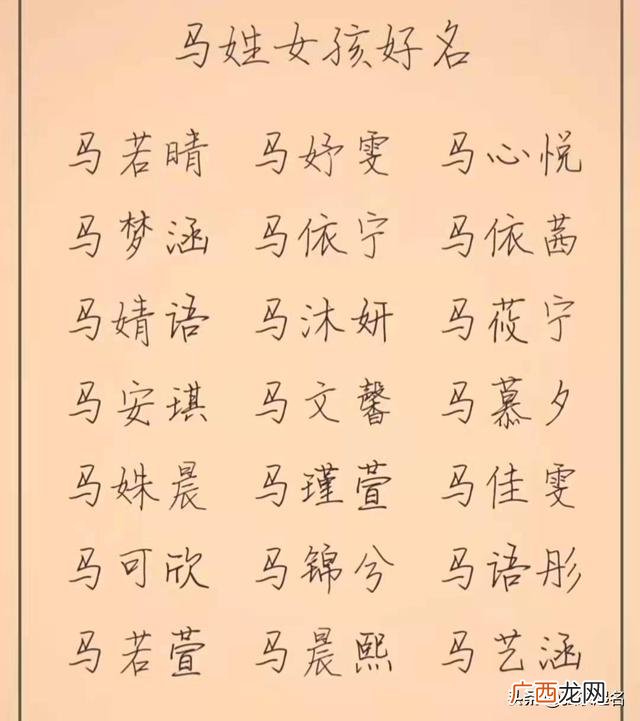 马姓女孩好名
马若晴 马妤雯 马心悦
马梦涵 马依宁 马依茜
马婧语 马沐妍 马莜宁
马安琪 马文馨 马慕夕
马姝晨 马瑾萱 马佳雯
马可欣 马锦兮 马语彤
马若萱 马晨熙 马艺涵
广西龙网